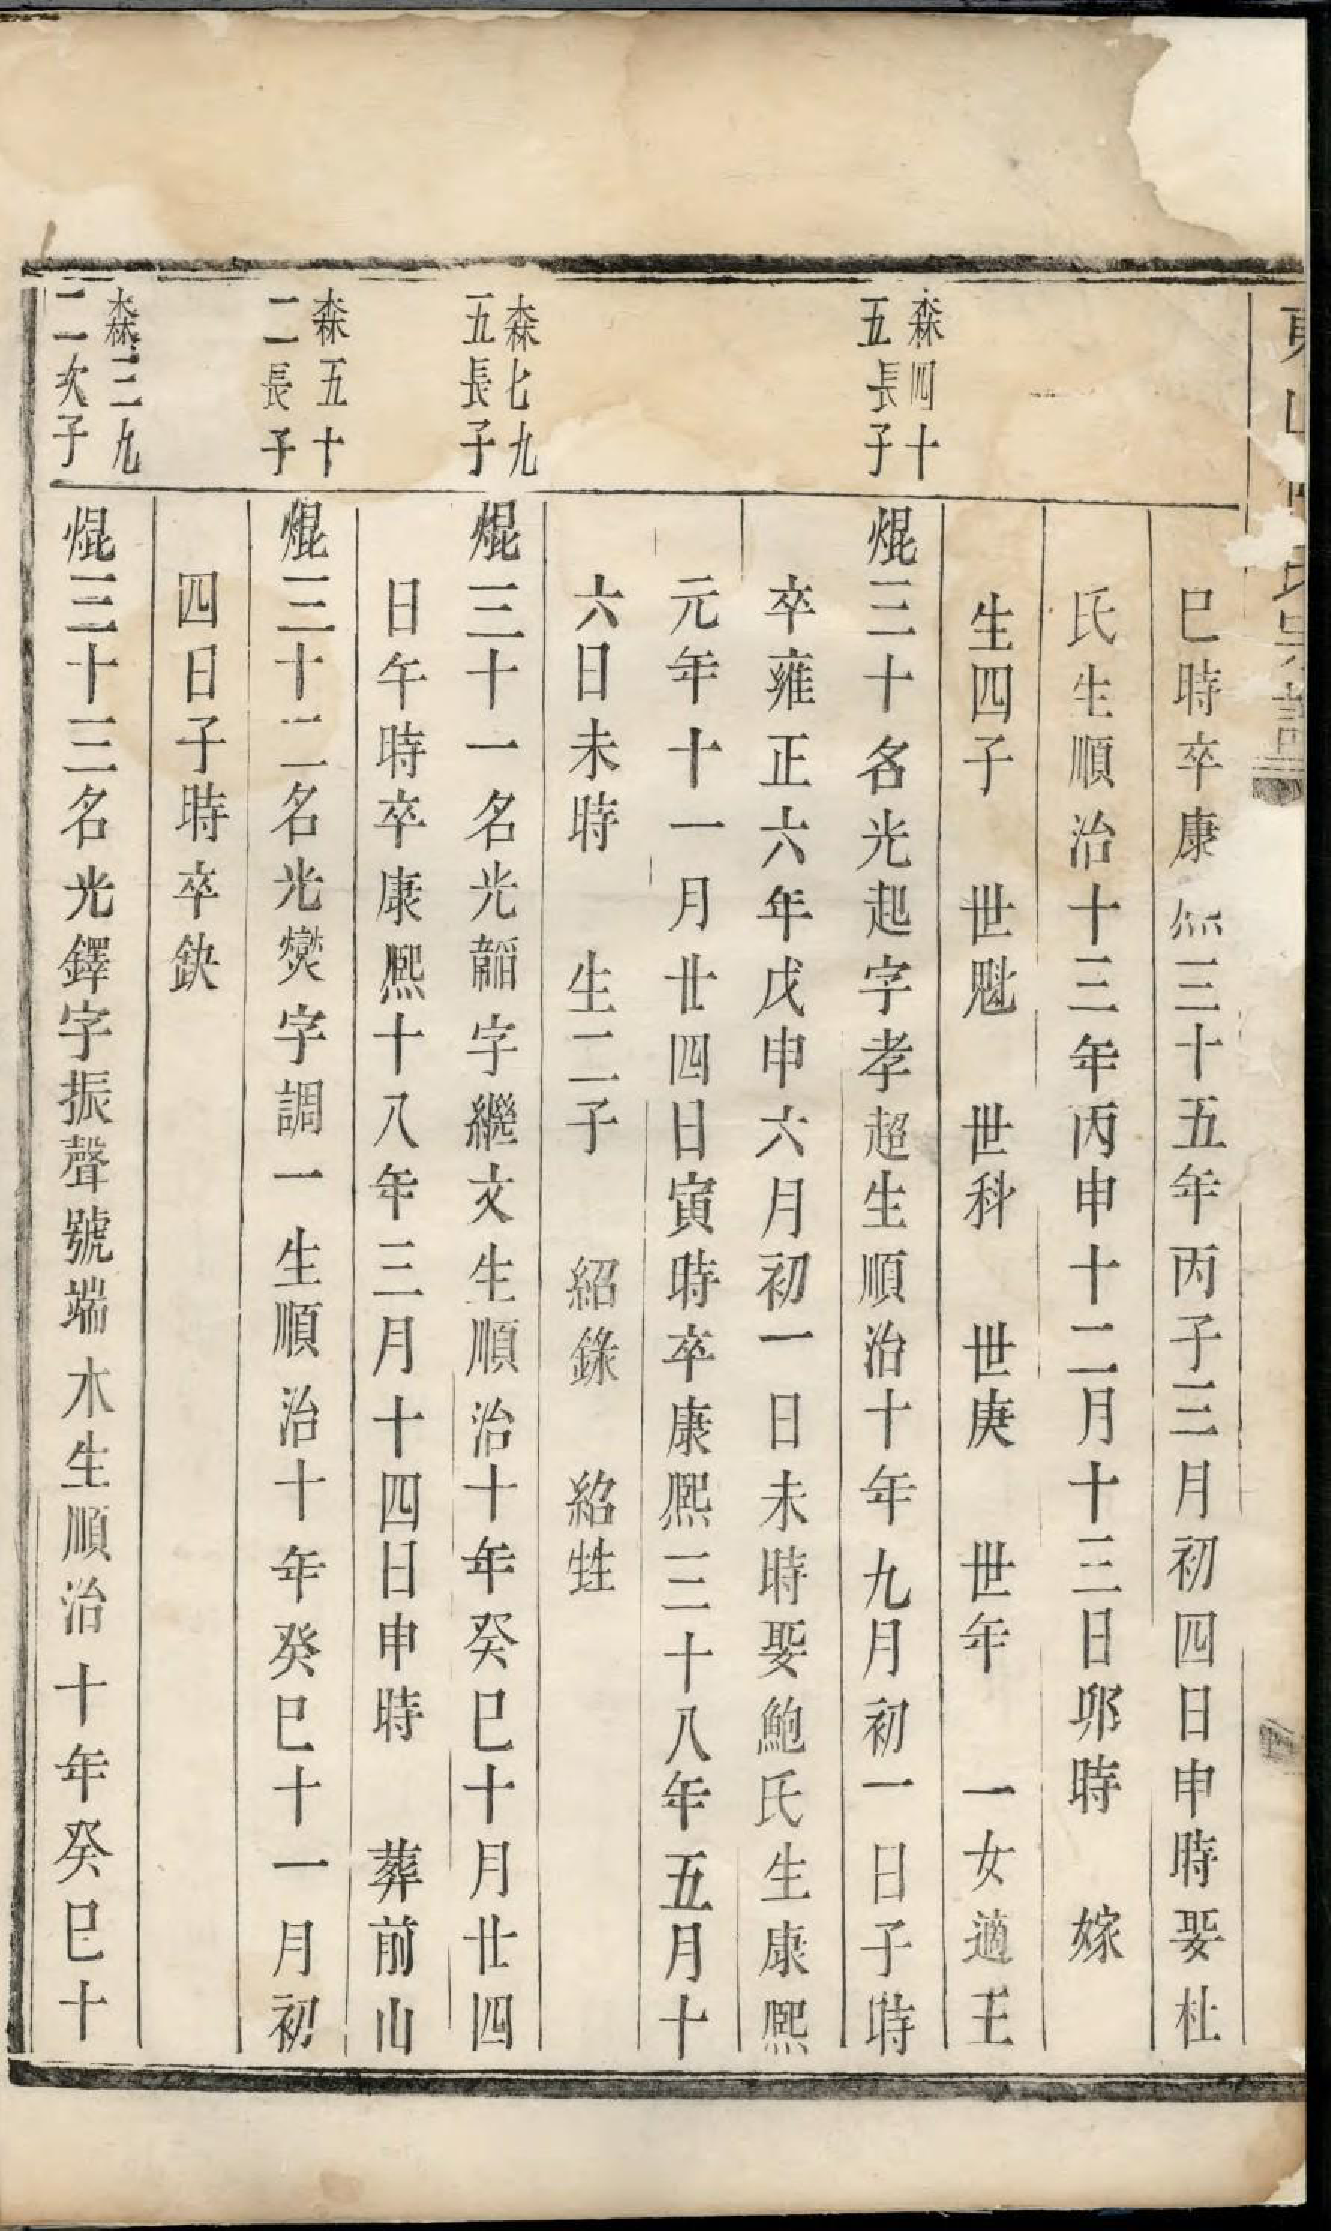 巳時卒康熙三十五年丙子三月初四日申時娶杜
氏生順治十三年丙申十二月十三日卯時　嫁
生四子　世魁　世科　世庚　世年　一女適王
森四十
五長子
焜三十名光起字孝超生順治十年九月初一日子時
卒雍正六年戊申六月初一日未時娶鮑氏生康熙
元年十一月廿四日寅時卒康熙三十八年五月十
六日未時　生二子　紹錄　紹甡
森七九
五長子
焜三十一名光韶字繼文生順治十年癸巳十月廿四
日午時卒康熙十八年三月十四日申時　葬前山
森五十
二長子
焜三十二名光爕字調一生順治十年癸巳十一月初
四日子時卒缺
森三九
二次子
焜三十三名光鐸字振聲號端木生順治十年癸巳十